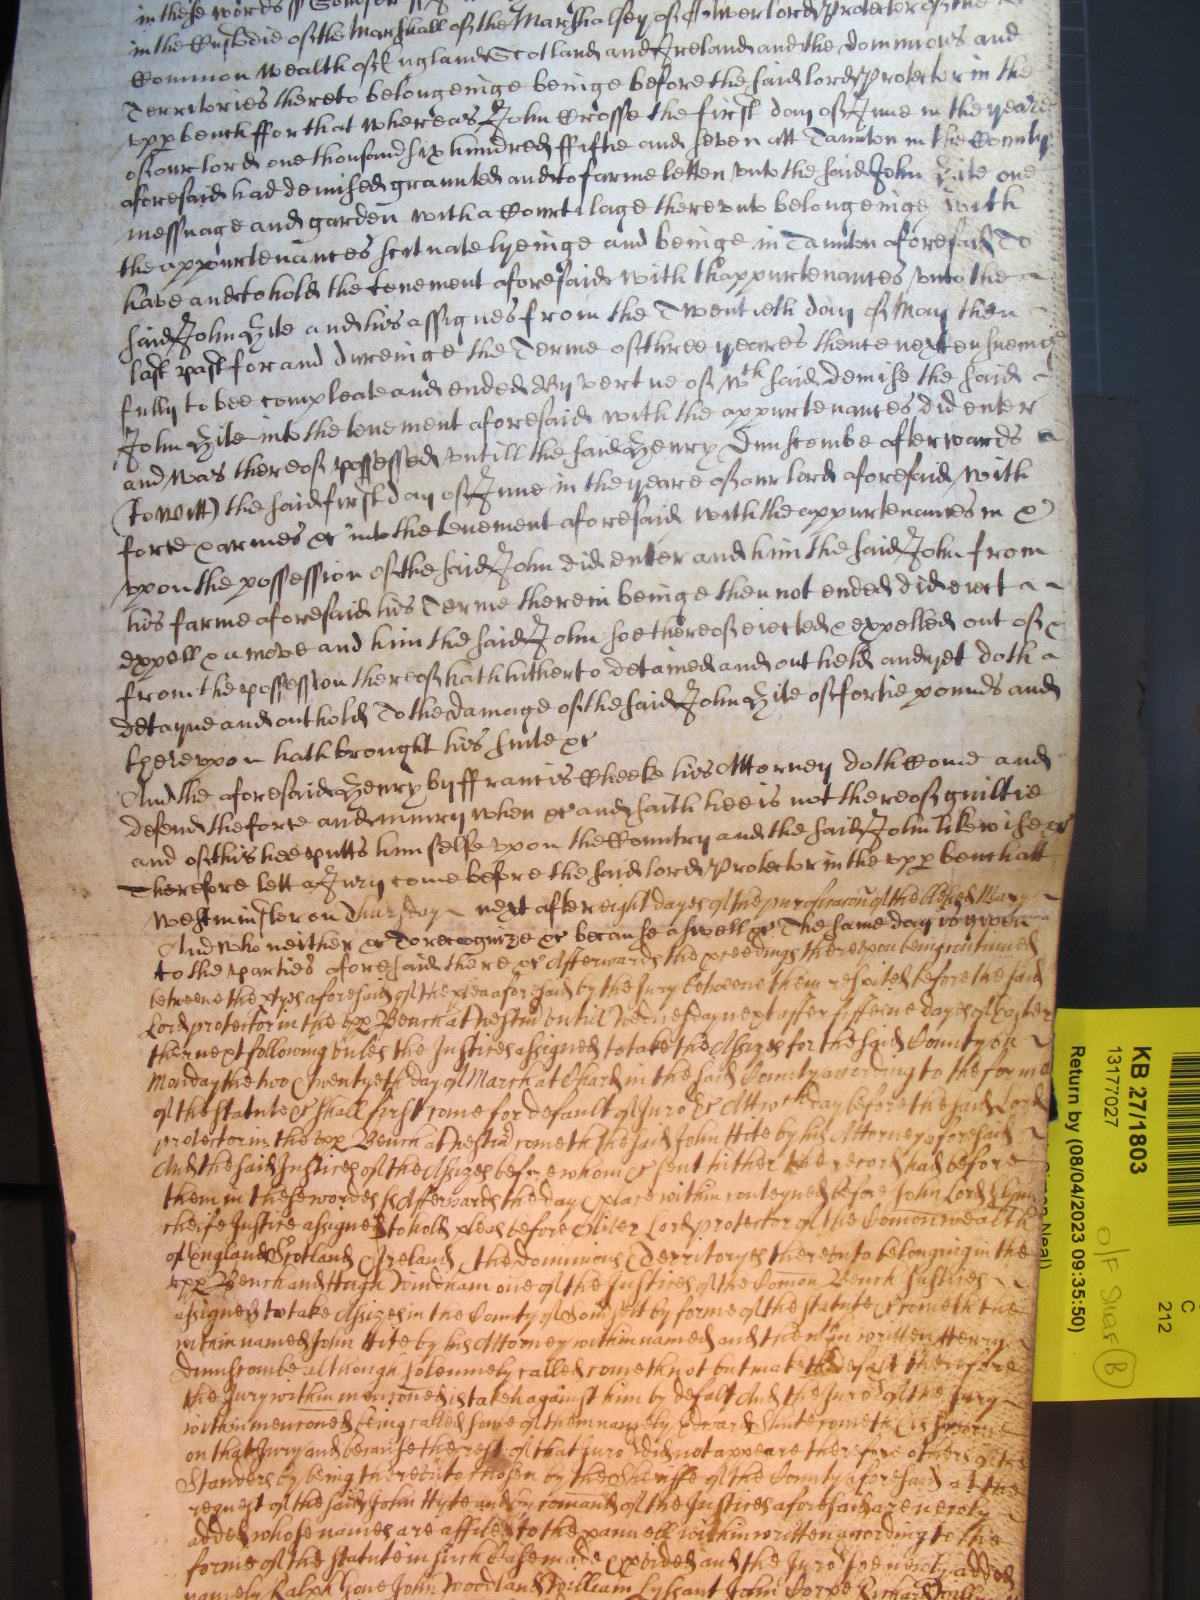 in these words
in the Custodie of the Marshall of the Marshalsey of Oliver lord Protector of the
Common Wealth of England Scotland and Ireland and the dominions and
Territories thereto belongeinge beinge before the said lord Protector in the
vpp bench ffor that whereas John Crosse the first day of June in the yeare
of our lord one thousand six hundred ffiftie and seven att Taunton in the County
aforesaid had demised graunted and to farme letten vnto the said John Hite one
messuage and garden with a Courtilage therevnto belongeinge with
the appurtenances scituate lyeinge and beinge in Taunton aforesaid To
have and to hold the tenement aforesaid with thappurtenances vnto the
said John Hite and his assignes from the Twentieth day of May then
last past for and dureinge the Terme of three yeares thence next ensueing
fully to bee compleate and ended By vertue of wth said demise the said
John Hite into the tenement aforesaid with the appurtenances did enter
and was thereof possessed vntill the said Henry Dunscombe afterwards
(to witt) the said first day of June in the yeare of our lord aforesaid with
force & armes &c into the tenement aforesaid with the appurtenances in &
vpon the possession of the said John did enter and him the said John from
his farme aforesaid his Terme therein beinge then not ended did eiect
expell & amove and him the said John soe thereof eiected & expelled out of &
from the possession thereof hath hitherto detained and out held and yet doth
detayne and out hold To the damage of the said John Hite of fortie pounds and
therevpon hath brought his suite &c
And the aforesaid Henry by ffrancis Cheeke his Attorney doth Come and
defend the force and iniury when &c and saith hee is not thereof guiltie
and of this hee putts himselfe vpon the Country and the said John likewise &c
Therefore lett a Jury come before the said lord Protector in the vpp bench att
Westminster on Thursday next after eight dayes of the purificacon of the blessed Mary
And who neither &c To recognize &c because aswell &c The same day is given
to the parties aforesaid there &c Afterwards the proceedings therevpon being continued
betweene the ptyes aforesaid of the plea aforesaid by the Jury betweene them respited before the said
Lord protector in the vpp Bench at Westm vntill Wednesday next after fifteene dayes of Easter
then next following vnles the Justices assigned to take the Assizes for the said County on
Monday the two & twentyeth day of March at Chard in the said County according to the forme
of the statute &c shall first come for default of Juro &c Att wch day before the said Lord
protector in the vpp Bench at Westm cometh the said John Hite by his Attorney aforesaid
And the said Justices of the Assizes before whom &c sent hither the record had before
them in these wordes Afterwards the day & place within conteyned before John Lord Glynn
cheife Justice assigned to hold pleas before Oliver Lord protector of the Comonwealth
of England Scotland & Ireland & the dominions & Territoryes therevnto belonging in the
vpp Bench and Hugh Windham one of the Justices of the Comon Bench Justices
assigned to take Assizes in the County of Somstt by forme of the statute & cometh the
within named John Hite by his Attorney within named and the within written Henry
Dunscombe although solemnely called cometh not but maketh defalt therefore
the Jury within menconed is taken against him by defalt And the Juro of the Jury
within menconed being called some of them namely Edward Slute cometh & is sworne
on that Jury and because the rest of that Juro did not appeare therefore others of the
Standers by being therevnto chosen by the Sheriffe of the County aforesaid at the
request of the said John Hyte and by comand of the Justices aforesaid are newly
added whose names are affiled to the pannell within written according to the
forme of the statute in such Case made & pvided and the Juro soe newly added
namely Ralph Gove John Woodland William Lyssant John Corpe Richard
KB 27/1803
13177027
Return by (08/04/2023 09:35:50)
C
212
O/F Shar B